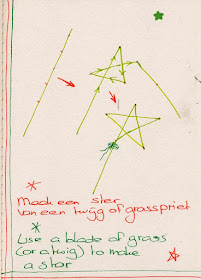 Maak een ster
van een twijg of grasspriet
Use a blade of grass
(or a twig) to make
a star